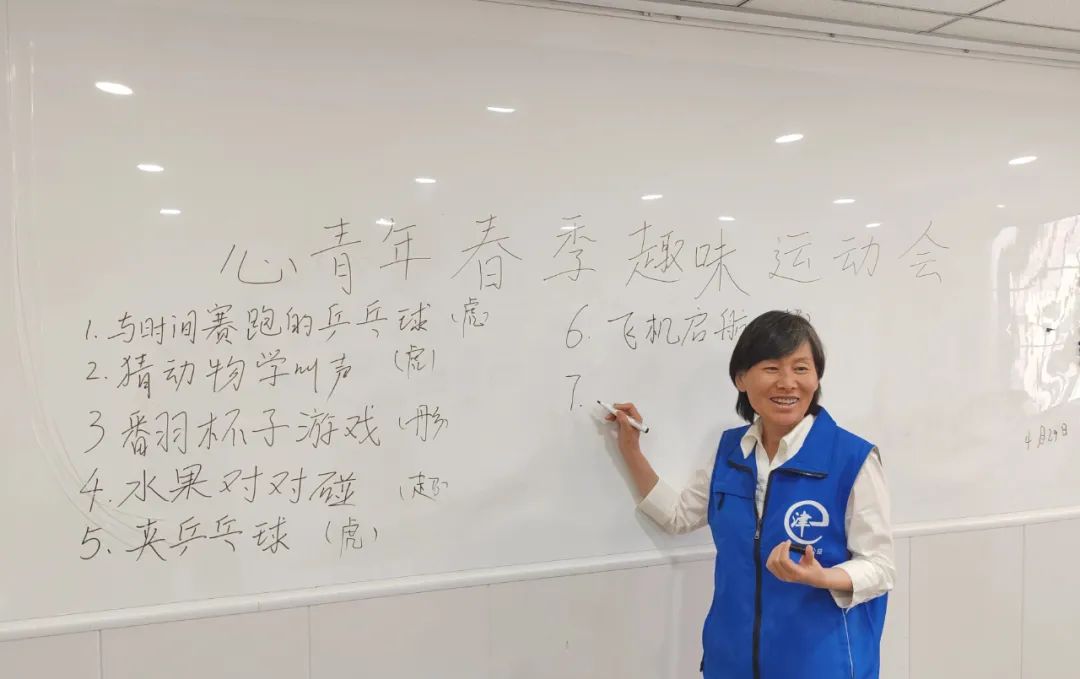 心青年春季趣味运动会
1. 与时间赛跑的乒乓球 (虎)
2. 猜动物学叫声 (虎)
3 番羽杯子游戏 (彤)
4. 水果对对碰
5. 夹乒乓球 (虎)
6. 飞机启航
7.
4月29日
津
公益